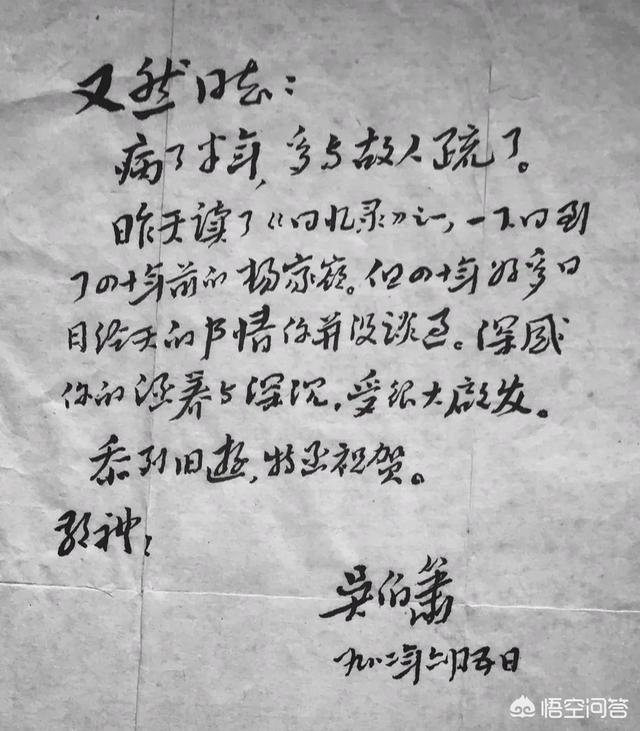 又然同志:
病了半年,多与故人疏了。
昨天读了《回忆录》之一,一下回到
了四十年前的杨家岭。但四十年好多日
日经天的事情你并没谈过。深感
你的涵养与深沉,受很大启发。
忝列旧游,特函祝贺。
敬礼!
吴伯箫
一九八二年六月五日
悟空问答